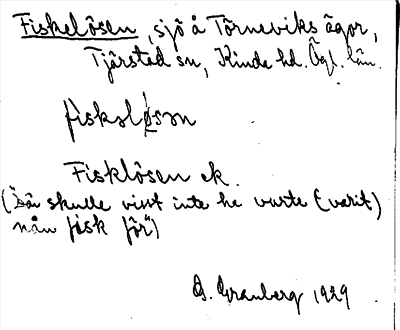 Fiskelösen, sjö å Törneviks ägor,
Tjärstad sn, Kinda hd. Ögl. län.
fisksløsən
Fisklösen ek.
("Dä skulle visst inte ha varte (varit)
nån fisk för")
G. Granberg 1929